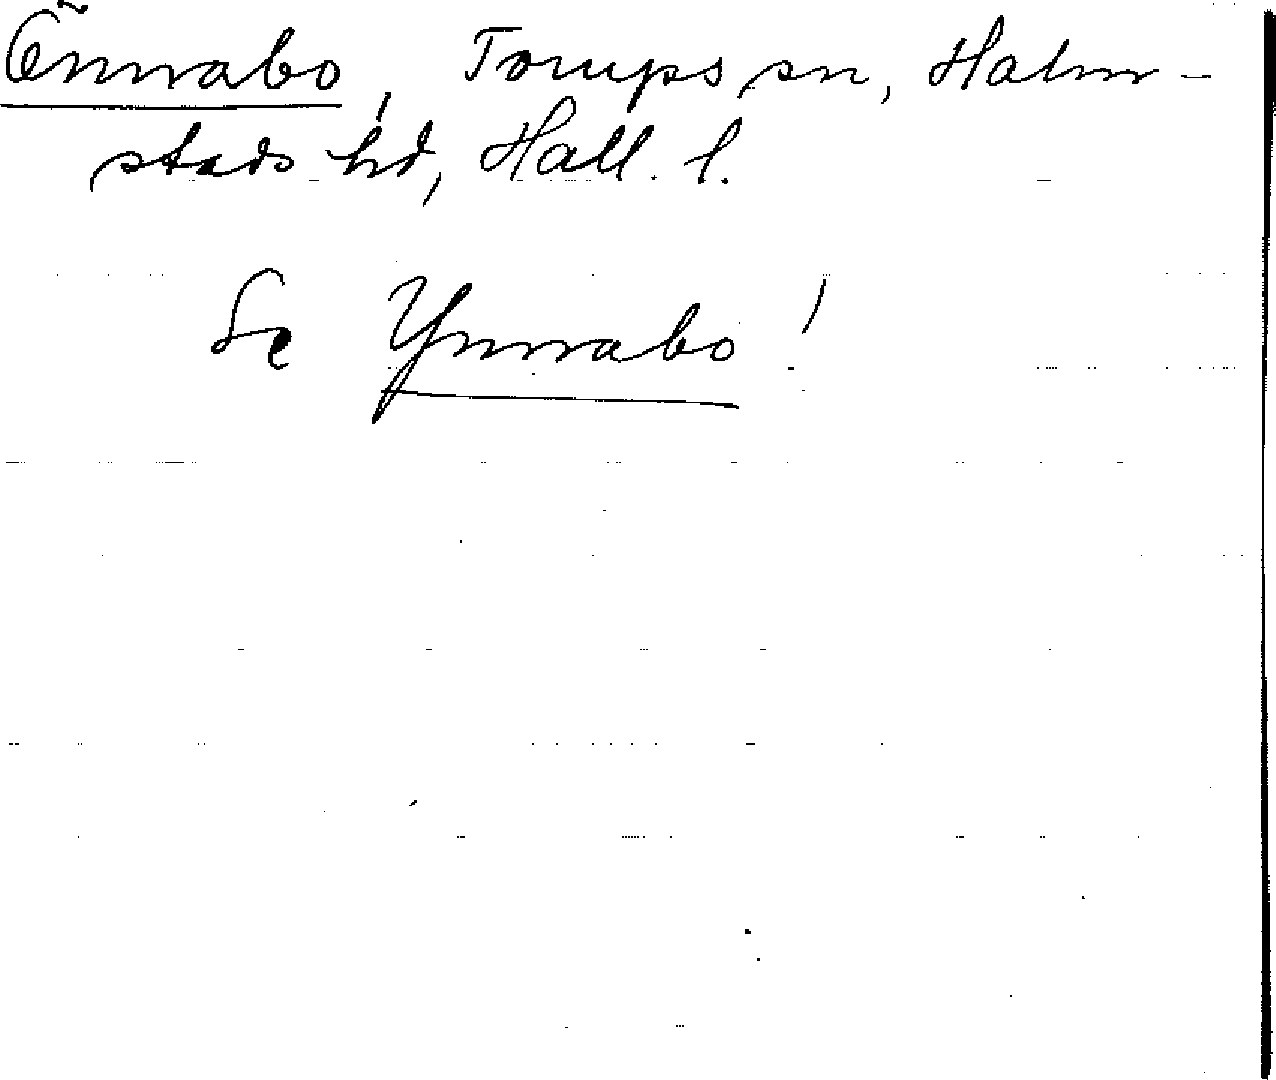 Önnabo, Torups sn, Halm-
stads hd, Hall. l.
Se Ynnabo!